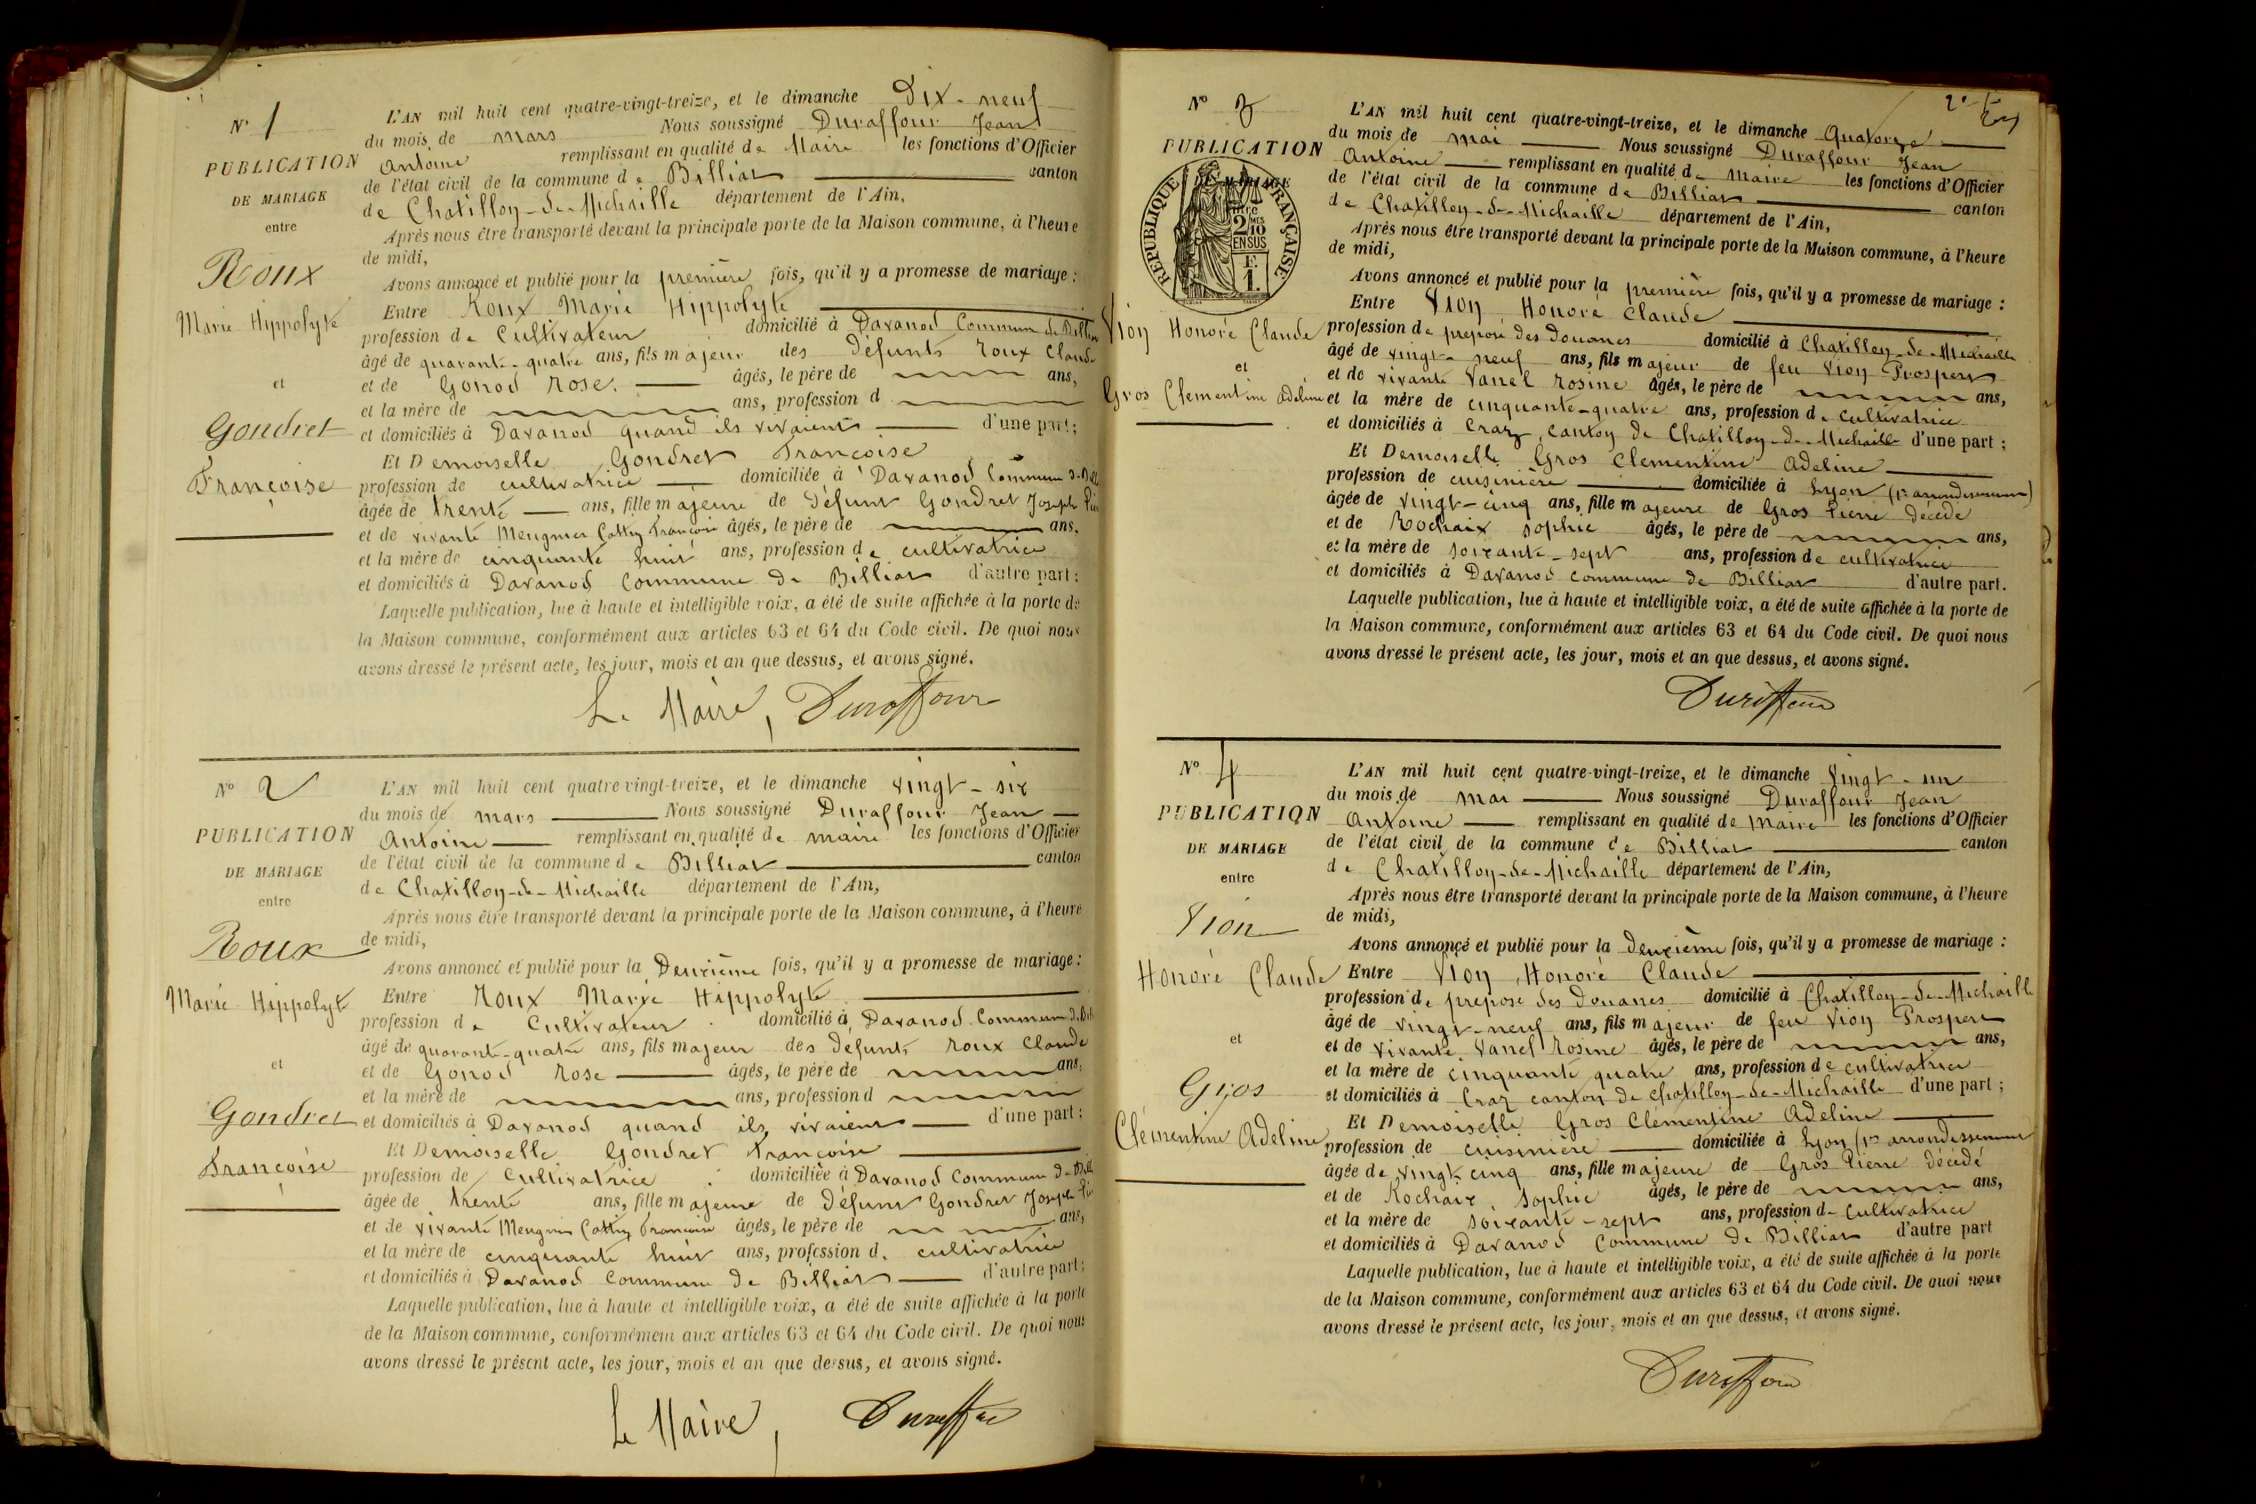 N° 1
PUBLICATION
DE MARIAGE
entre
Roux
Marie Hippolyte
et
Gondret
Françoise
L'AN mil huit cent quatre-vingt-treize, et le dimanche Dix-neuf
du mois de mars Nous soussigné Duraffour Jean
Antoine remplissant en qualité de Maire les fonctions d'Officier
de l'état civil de la commune de Billiat canton
de Chatillon-de-Michaille département de l'Ain,
Après nous être transporté devant la principale porte de la Maison commune, à l'heure
de midi,
Avons annoncé et publié pour la première fois, qu'il y a promesse de mariage :
Entre Roux Marie Hippolyte
profession de Cultivateur domicilié à Davanod Commune de Billiat
âgé de quarante-quatre ans, fils majeur des défunts Roux Claude
et de Gonod Rose. âgés, le père de ans,
et la mère de ans, profession d
et domiciliés à Davanod quand ils vivaient d'une part;
Et Demoiselle Gondret Françoise
profession de cultivatrice domiciliée à Davanod Commune de
âgée de trente ans, fille majeure de défunt Gondret Joseph
et de vivante Meugnier Cattin Françoise âgés, le père de ans,
et la mère de cinquante huit ans, profession de cultivatrice
et domiciliés à Davanod Commune de Billiat d'autre part;
Laquelle publication, lue à haute et intelligible voix, a été de suite affichée à la porte de
la Maison commune, conformément aux articles 63 et 64 du Code civil. De quoi nous
avons dressé le présent acte, les jour, mois et an que dessus, et avons signé.
Le Maire, Duraffour
N° 2
PUBLICATION
DE MARIAGE
entre
Roux
Marie Hippolyte
et
Gondret
Françoise
L'AN mil huit cent quatre-vingt-treize, et le dimanche vingt-six
du mois de mars Nous soussigné Duraffour Jean
Antoine remplissant en qualité de maire les fonctions d'Officier
de l'état civil de la commune de Billiat canton
de Chatillon-de-Michaille département de l'Ain,
Après nous être transporté devant la principale porte de la Maison commune, à l'heure
de midi,
Avons annoncé et publié pour la Deuxième fois, qu'il y a promesse de mariage :
Entre Roux Marie Hippolyte
profession de Cultivateur domicilié à Davanod Commune de
âgé de quarante-quatre ans, fils majeur des défunts Roux Claude
et de Gonod Rose âgés, le père de ans,
et la mère de ans, profession d
et domiciliés à Davanod quand ils vivaient d'une part;
Et Demoiselle Gondret Françoise
profession de Cultivatrice domiciliée à Davanod Commune de
âgée de trente ans, fille majeure de défunt Gondret Joseph
et de vivante Meugnier Cattin Françoise âgés, le père de ans,
et la mère de cinquante huit ans, profession d. cultivatrice
et domiciliés à Davanod Commune de Billiat d'autre part;
Laquelle publication, lue à haute et intelligible voix, a été de suite affichée à la porte
de la Maison commune, conformément aux articles 63 et 64 du Code civil. De quoi nous
avons dressé le présent acte, les jour, mois et an que dessus, et avons signé.
Le Maire, Duraffour
N° 3
PUBLICATION
DE MARIAGE
entre
RÉPUBLIQUE FRANÇAISE
2/10
EN SUS
F.
1.
Vion Honoré Claude
et
Gros Clementine Adeline
L'AN mil huit cent quatre-vingt-treize, et le dimanche Quatorze
du mois de mai Nous soussigné Duraffour Jean
Antoine remplissant en qualité de maire les fonctions d'Officier
de l'état civil de la commune de Billiat canton
de Chatillon-de-Michaille département de l'Ain,
Après nous être transporté devant la principale porte de la Maison commune, à l'heure
de midi,
Avons annoncé et publié pour la première fois, qu'il y a promesse de mariage :
Entre Vion Honoré Claude
profession de préposé des Douanes domicilié à Chatillon-de-Michaille
âgé de vingt-neuf ans, fils majeur de feu Vion Prospert
et de vivante Vanel Rosine âgés, le père de ans,
et la mère de cinquante-quatre ans, profession de cultivatrice
et domiciliés à Craz, canton de Chatillon-de-Michaille d'une part ;
Et Demoiselle Gros Clementine Adeline
profession de cuisinière domiciliée à Lyon (1er arrondissement)
âgée de vingt-cinq ans, fille majeure de Gros Pierre décédé
et de Rochaix Sophie âgés, le père de ans,
et la mère de soixante-sept ans, profession de cultivatrice
et domiciliés à Davanod commune de Billiat d'autre part.
Laquelle publication, lue à haute et intelligible voix, a été de suite affichée à la porte de
la Maison commune, conformément aux articles 63 et 64 du Code civil. De quoi nous
avons dressé le présent acte, les jour, mois et an que dessus, et avons signé.
Duraffour
N° 4
PUBLICATION
DE MARIAGE
entre
Vion
Honoré Claude
et
Gros
Clémentine Adeline
L'AN mil huit cent quatre-vingt-treize, et le dimanche Vingt-un
du mois de mai Nous soussigné Duraffour Jean
Antoine remplissant en qualité de Maire les fonctions d'Officier
de l'état civil de la commune de Billiat canton
de Chatillon-de-Michaille département de l'Ain,
Après nous être transporté devant la principale porte de la Maison commune, à l'heure
de midi,
Avons annoncé et publié pour la Deuxième fois, qu'il y a promesse de mariage :
Entre Vion Honoré Claude
profession de préposé des Douanes domicilié à Chatillon-de-Michaille
âgé de vingt-neuf ans, fils majeur de feu Vion Prospert
et de vivante Vanel Rosine âgés, le père de ans,
et la mère de cinquante quatre ans, profession de cultivatrice
et domiciliés à Craz canton de Chatillon-de-Michaille d'une part ;
Et Demoiselle Gros Clémentine Adeline
profession de cuisinière domiciliée à Lyon (1er arrondissement
âgée de vingt-cinq ans, fille majeure de Gros Pierre décédé
et de Rochaix Sophie âgés, le père de ans,
et la mère de soixante-sept ans, profession de Cultivatrice
et domiciliés à Davanod Commune de Billiat d'autre part
Laquelle publication, lue à haute et intelligible voix, a été de suite affichée à la porte
de la Maison commune, conformément aux articles 63 et 64 du Code civil. De quoi nous
avons dressé le présent acte, les jour, mois et an que dessus, et avons signé.
Duraffour